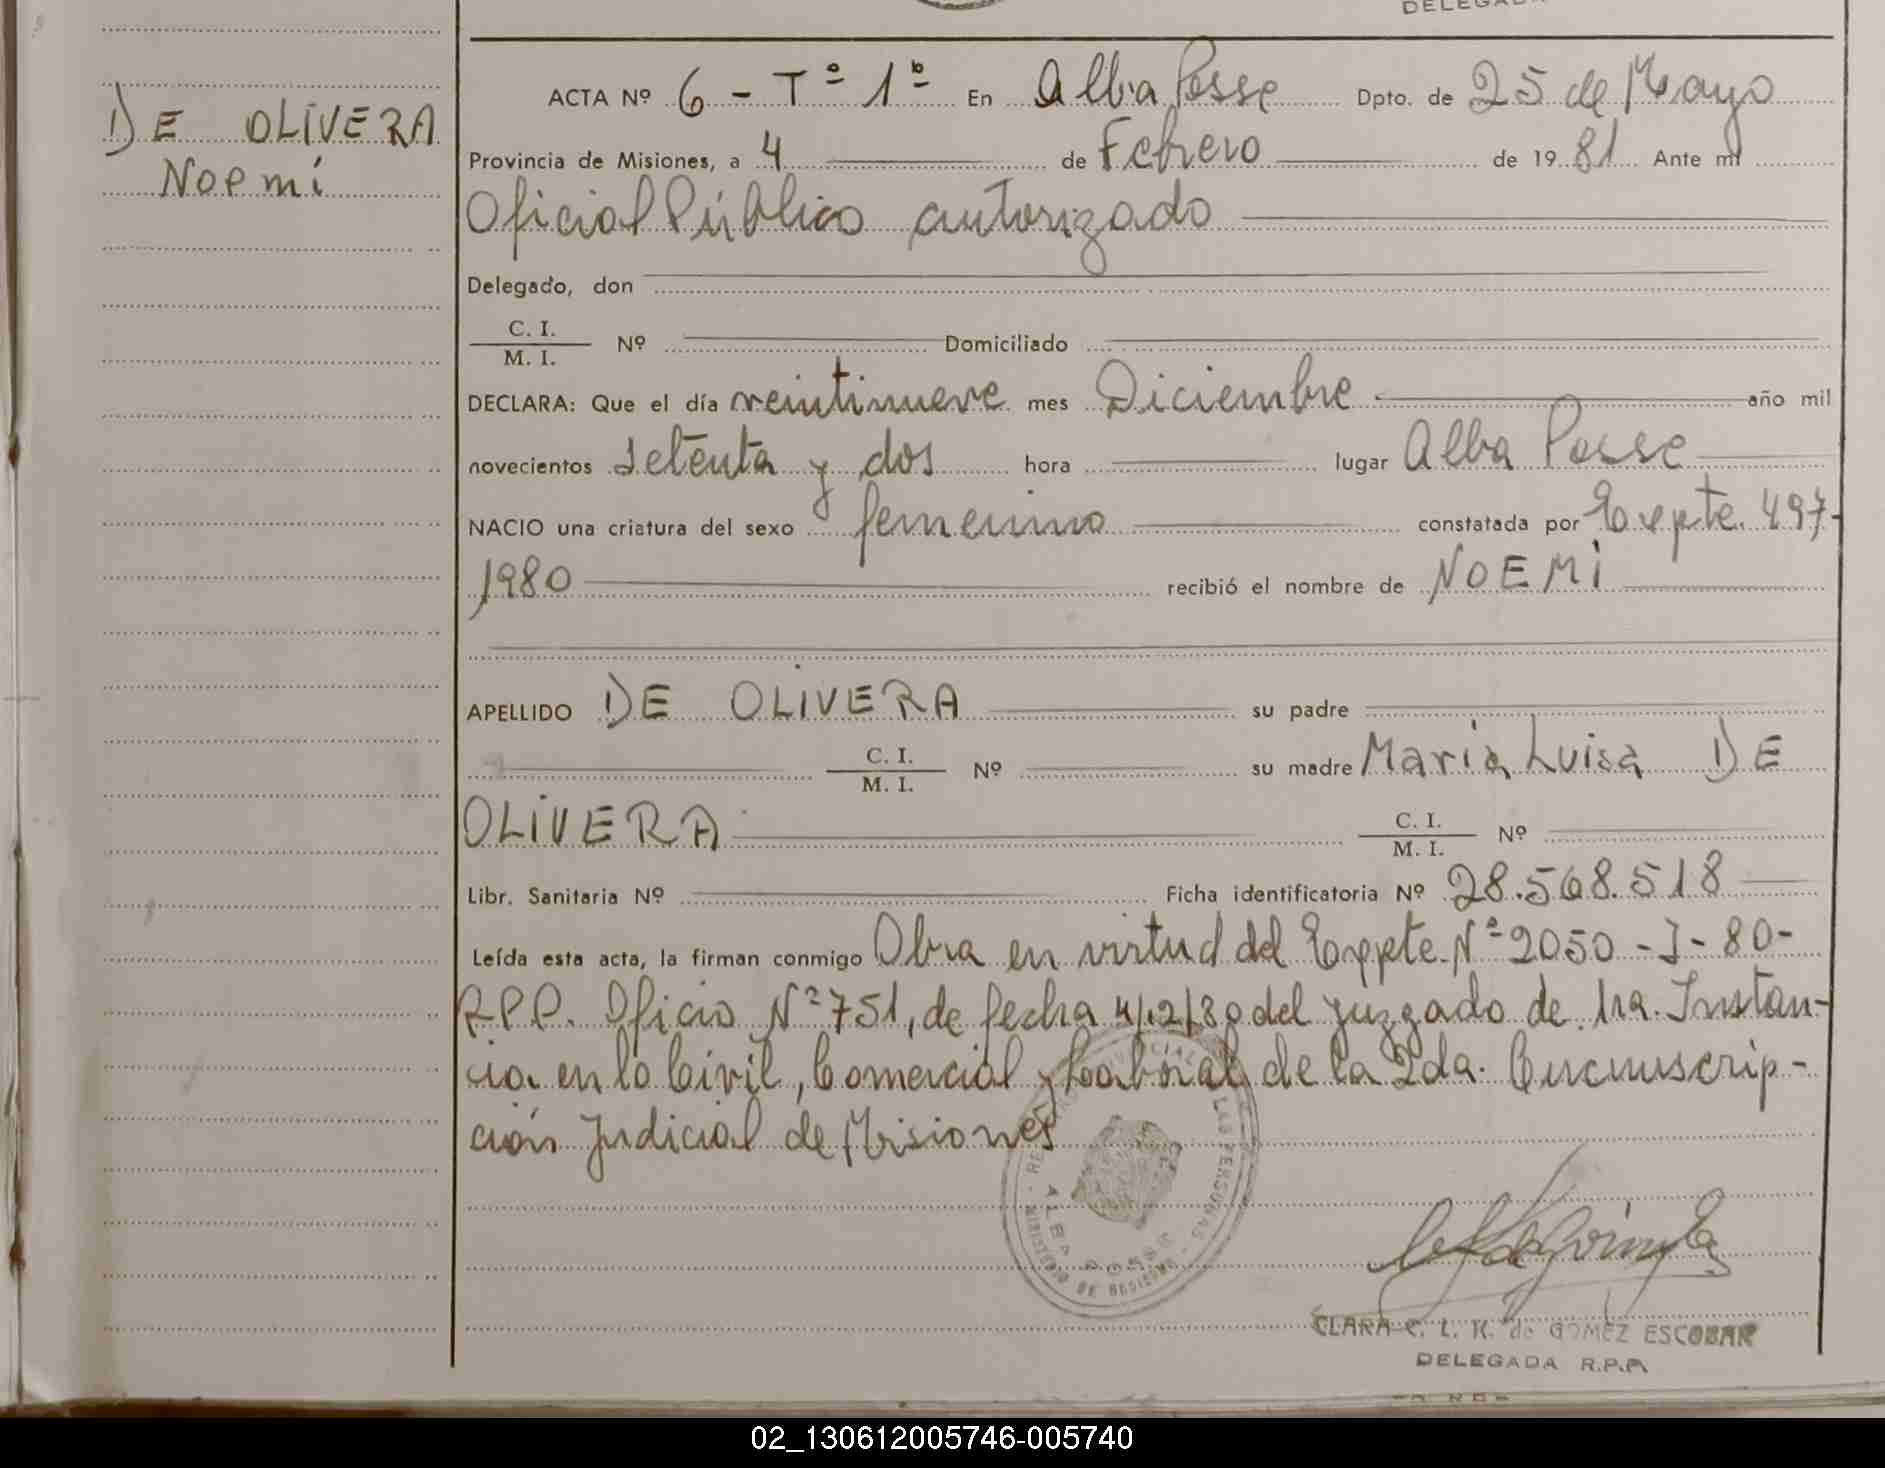 DELEGADA
DE OLIVERA
Noemí
ACTA Nº 6 - Tº 1º En Alba Posse Dpto. de 25 de Mayo
Provincia de Misiones, a 4 de Febrero de 1981 Ante mí
Oficial Público autorizado
Delegado, don
C. I.
M. I. Nº Domiciliado
DECLARA: Que el día veintinueve mes Diciembre año mil
novecientos setenta y dos hora lugar Alba Posse
NACIO una criatura del sexo femenino constatada por Expte. 497-
1980 recibió el nombre de NOEMÍ
APELLIDO DE OLIVERA su padre
C. I.
M. I. Nº su madre María Luisa DE
OLIVERA C. I.
M. I. Nº
Libr. Sanitaria Nº Ficha identificatoria Nº 28.568.518
Leída esta acta, la firman conmigo Obra en virtud del Expte. Nº 2050 - J - 80 -
R.P.P. Oficio Nº 751, de fecha 4/12/80 del juzgado de 1ra. Instan-
cia en lo Civil, Comercial y Laboral de la 2da. Circunscrip-
ción Judicial de Misiones
ALBA POSSE
MINISTERIO DE GOBIERNO
CLARA C. L. K. de GOMEZ ESCOBAR
DELEGADA R.P.P.
02_130612005746-005740